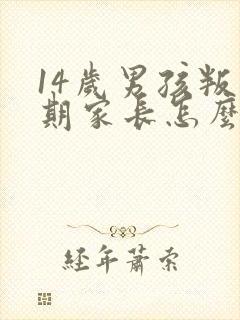 14歲男孩叛
期家长怎麼
經年蕭索